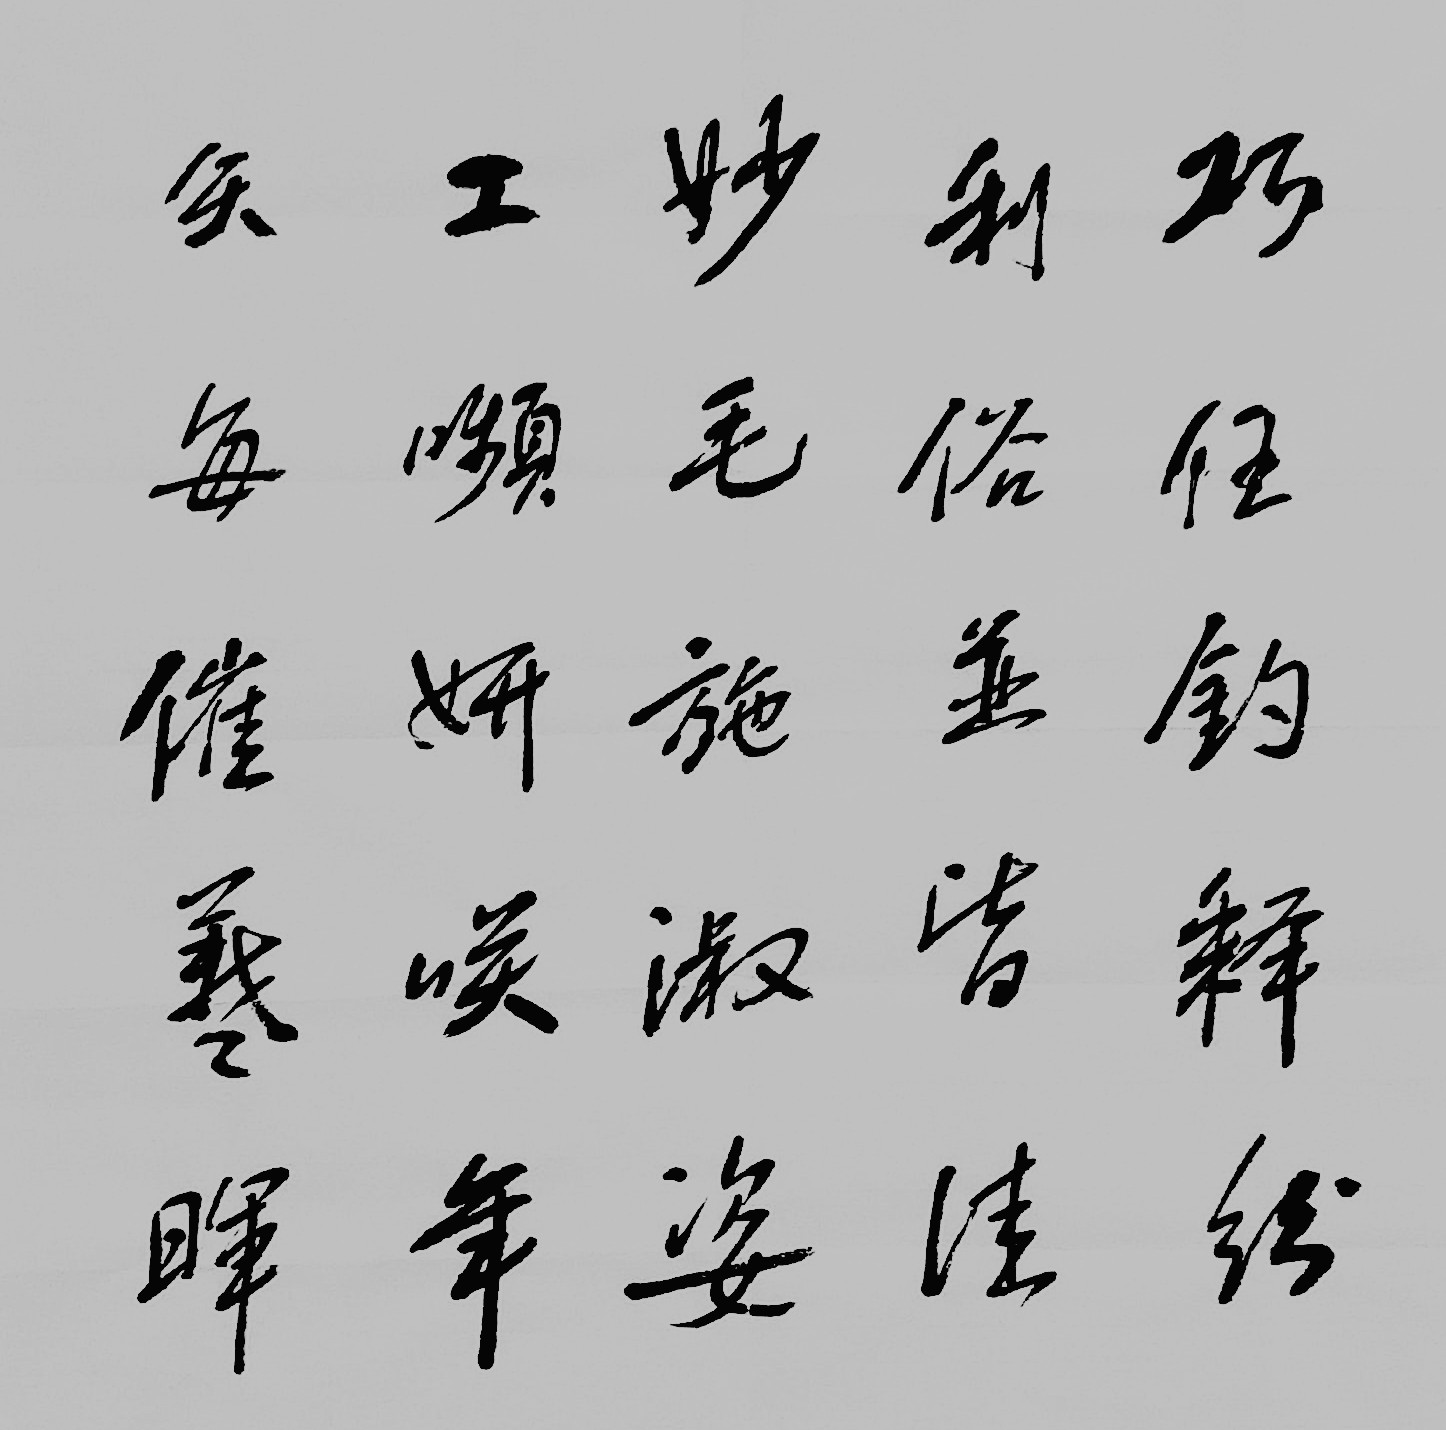 巧任釣釋紛
利俗並皆佳
妙毛施淑姿
工嚬妍咲年
矢每催羲暉